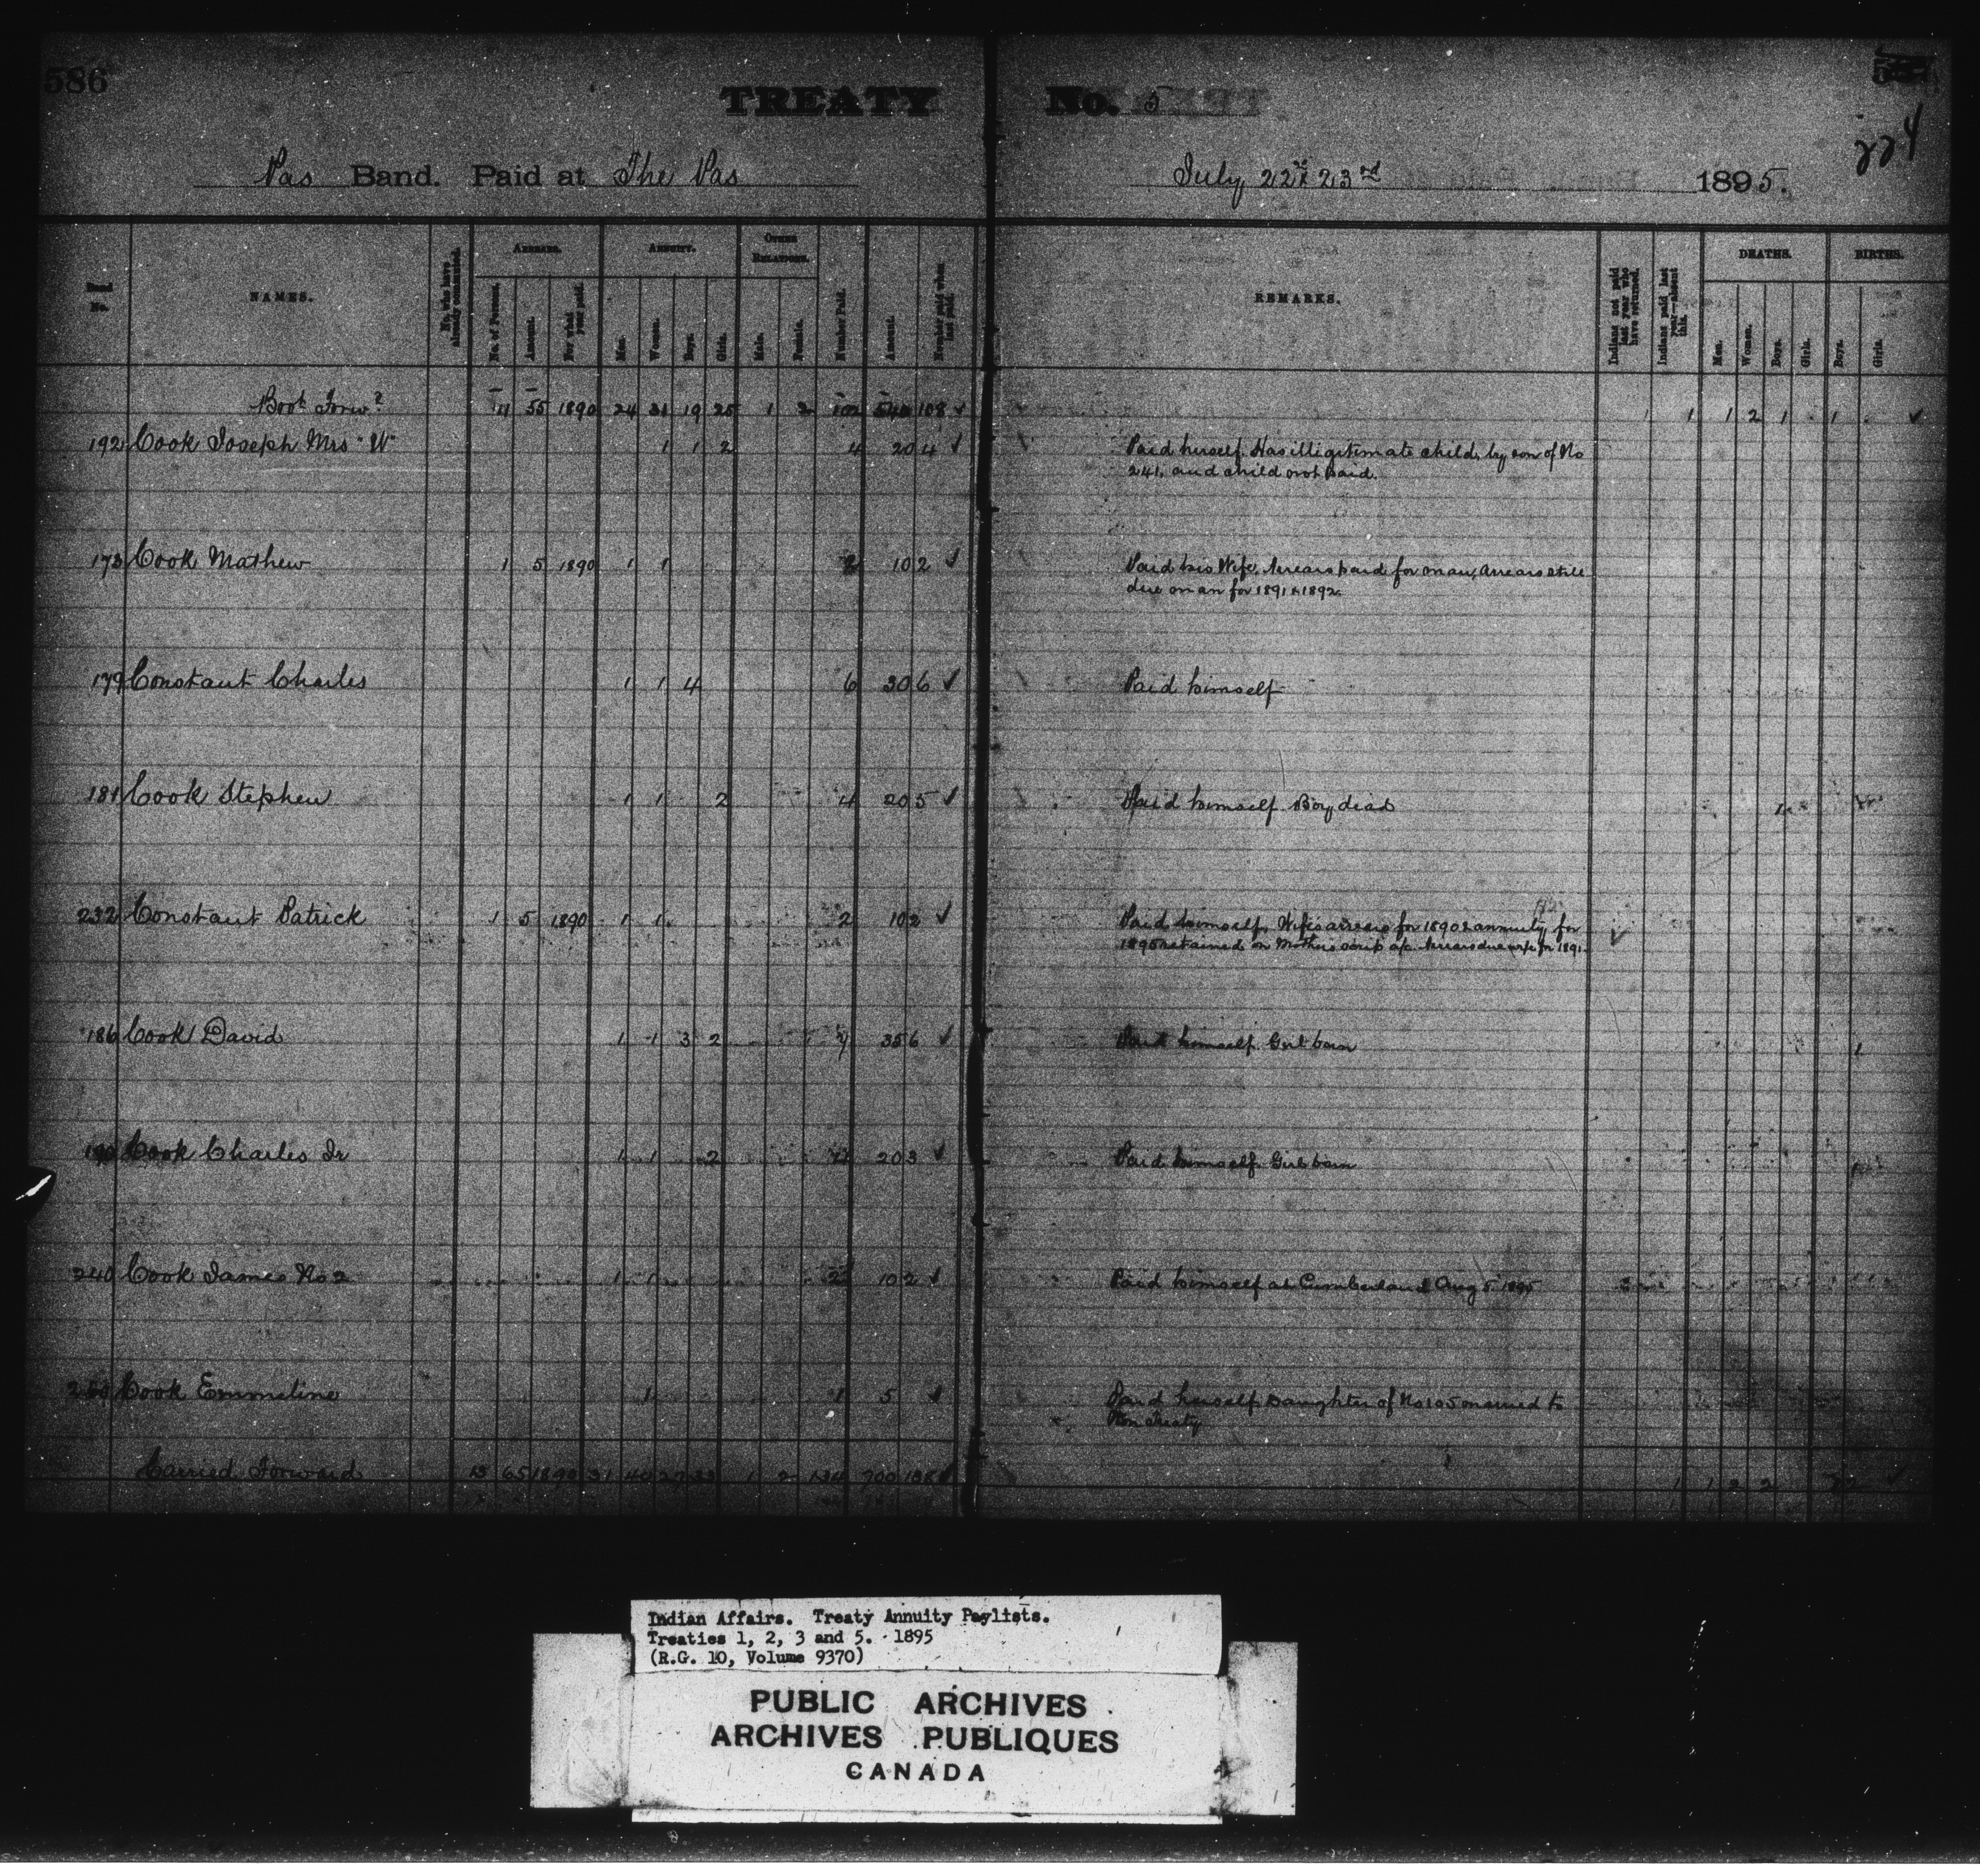 586
TREATY No. 5
224
Pas Band. Paid at The Pas July 22 & 23rd 1895.
No. NAMES. No. who have already commuted. ARREARS. ANNUITY. OTHER RELATIONS. Number Paid. Amount. Number paid when last paid. REMARKS. Indians not paid last year who have returned. Indians paid last year—absent this. DEATHS. BIRTHS.
No. of Persons. Amount. For what year paid. Men. Women. Boys. Girls. Male. Female. Men. Women. Boys. Girls. Boys. Girls.
Bro't Forwd 11 55 1890 24 31 19 25 1 2 102 540 108 ✓ 1 1 2 1 1 ✓
192 Cook Joseph Mrs "W" 1 1 2 4 20 4 ✓ Paid herself. Has illigitimate child, by son of No
241, and child not paid.
173 Cook Mathew 1 5 1890 1 1 2 10 2 ✓ Paid his Wife, Arrears paid for man, Arrears still
due man for 1891 & 1892.
179 Constant Charles 1 1 4 6 30 6 ✓ Paid himself
181 Cook Stephen 1 1 2 4 20 5 ✓ Paid himself Boy died 1
232 Constant Patrick 1 5 1890 1 1 2 10 2 ✓ Paid himself, Wife's arrears for 1890 & annuity for
1895 retained on Mother's scrip a/c. Arrears due wife for 1891. ✓
186 Cook David 1 1 3 2 7 35 6 ✓ Paid himself. Girl born 1
190 Cook Charles Jr 1 1 2 4 20 3 ✓ Paid himself. Girl born 1
240 Cook James No 2 1 1 2 10 2 ✓ Paid himself at Cumberland Aug 5 1895
Cook Emmeline 1 1 5 ✓ Paid herself, Daughter of No 105 married to
Non Treaty
Carried Forward 13 65 1890 31 40 27 33 1 2 134 700 138 ✓ 1 1 2 2 2 ✓
Indian Affairs. Treaty Annuity Paylists.
Treaties 1, 2, 3 and 5. 1895
(R.G. 10, Volume 9370)
PUBLIC ARCHIVES
ARCHIVES PUBLIQUES
CANADA